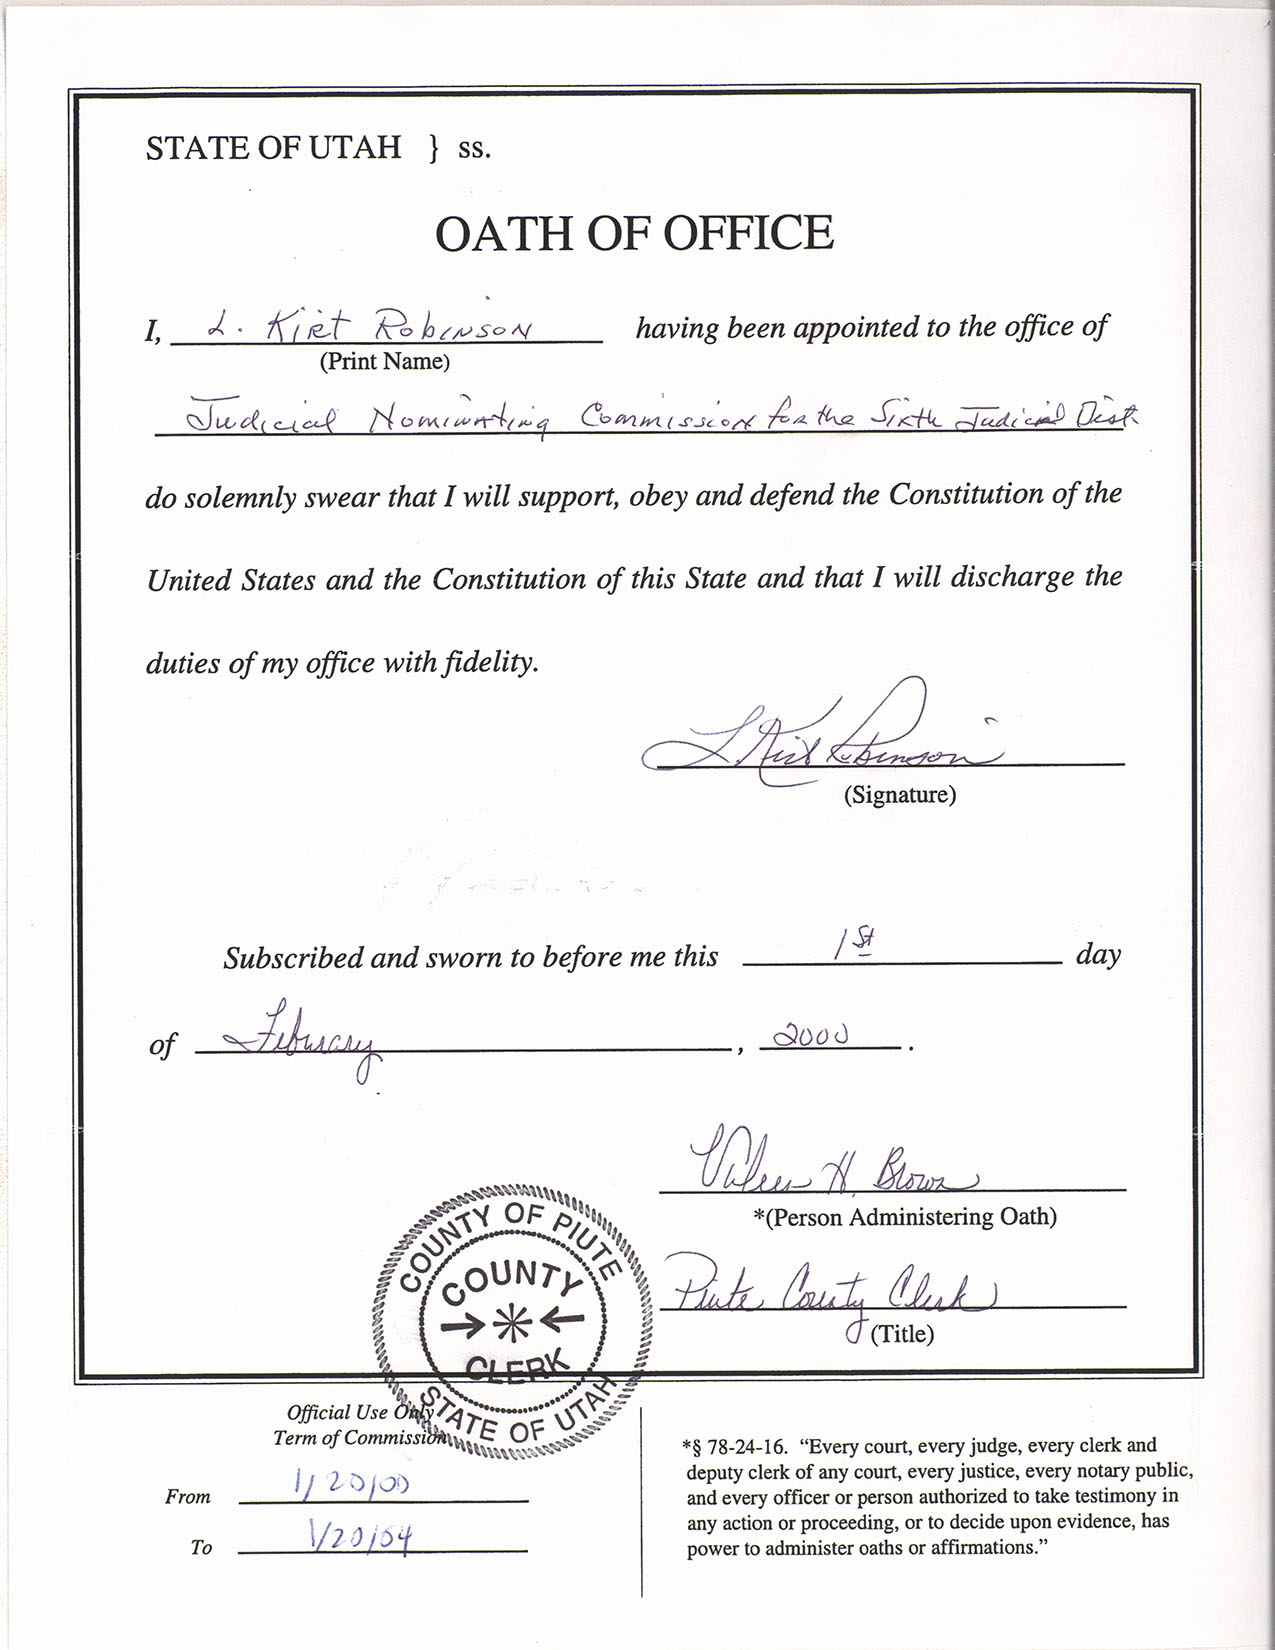 STATE OF UTAH } ss.
OATH OF OFFICE
I, L. Kirt Robinson having been appointed to the office of
(Print Name)
Judicial Nominating Commission for the Sixth Judicial Dist
do solemnly swear that I will support, obey and defend the Constitution of the
United States and the Constitution of this State and that I will discharge the
duties of my office with fidelity.
L Kirt Robinson
(Signature)
Subscribed and sworn to before me this 1st day
of Feburary, 2000.
Valeen H. Brown
*(Person Administering Oath)
Piute County Clerk
(Title)
COUNTY OF PIUTE
COUNTY
CLERK
STATE OF UTAH
Official Use Only
Term of Commission
From 1/20/00
To 1/20/04
*§ 78-24-16. “Every court, every judge, every clerk and
deputy clerk of any court, every justice, every notary public,
and every officer or person authorized to take testimony in
any action or proceeding, or to decide upon evidence, has
power to administer oaths or affirmations.”